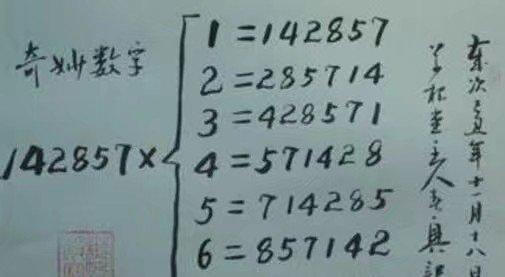 奇妙数字
142857×
1=142857
2=285714
3=428571
4=571428
5=714285
6=857142
年十一月十八日
主人